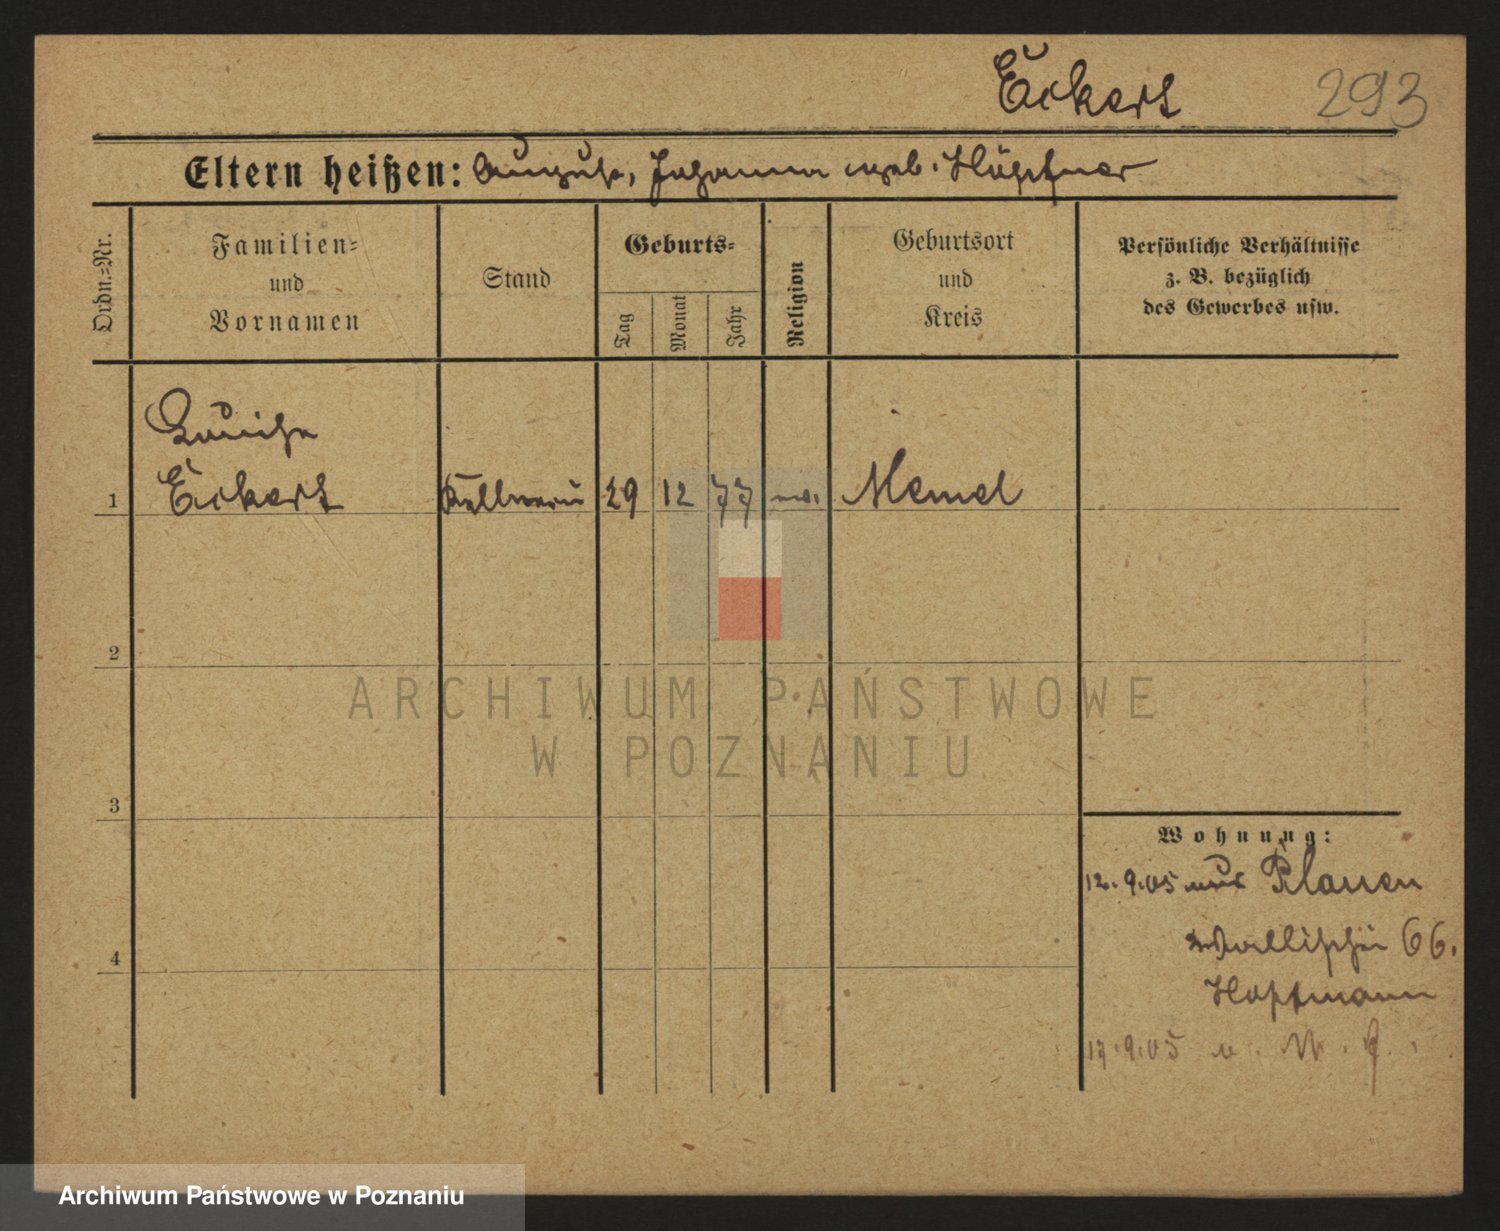 Eckert 293
Eltern heißen: August, Johanna geb. Höpfner
Ordn.=Nr.
Familien=
und
Vornamen
Stand
Geburts=
Tag
Monat
Jahr
Religion
Geburtsort
und
Kreis
Persönliche Verhältnisse
z. B. bezüglich
des Gewerbes usw.
Louise
1 Eckert Kellnerin 29 12 77 ev. Memel
2
3
4
Wohnung:
12.9.05 aus Plauen
Wallischei 66.
Hoffmann
17.9.05
ARCHIWUM PAŃSTWOWE
W POZNANIU
Archiwum Państwowe w Poznaniu